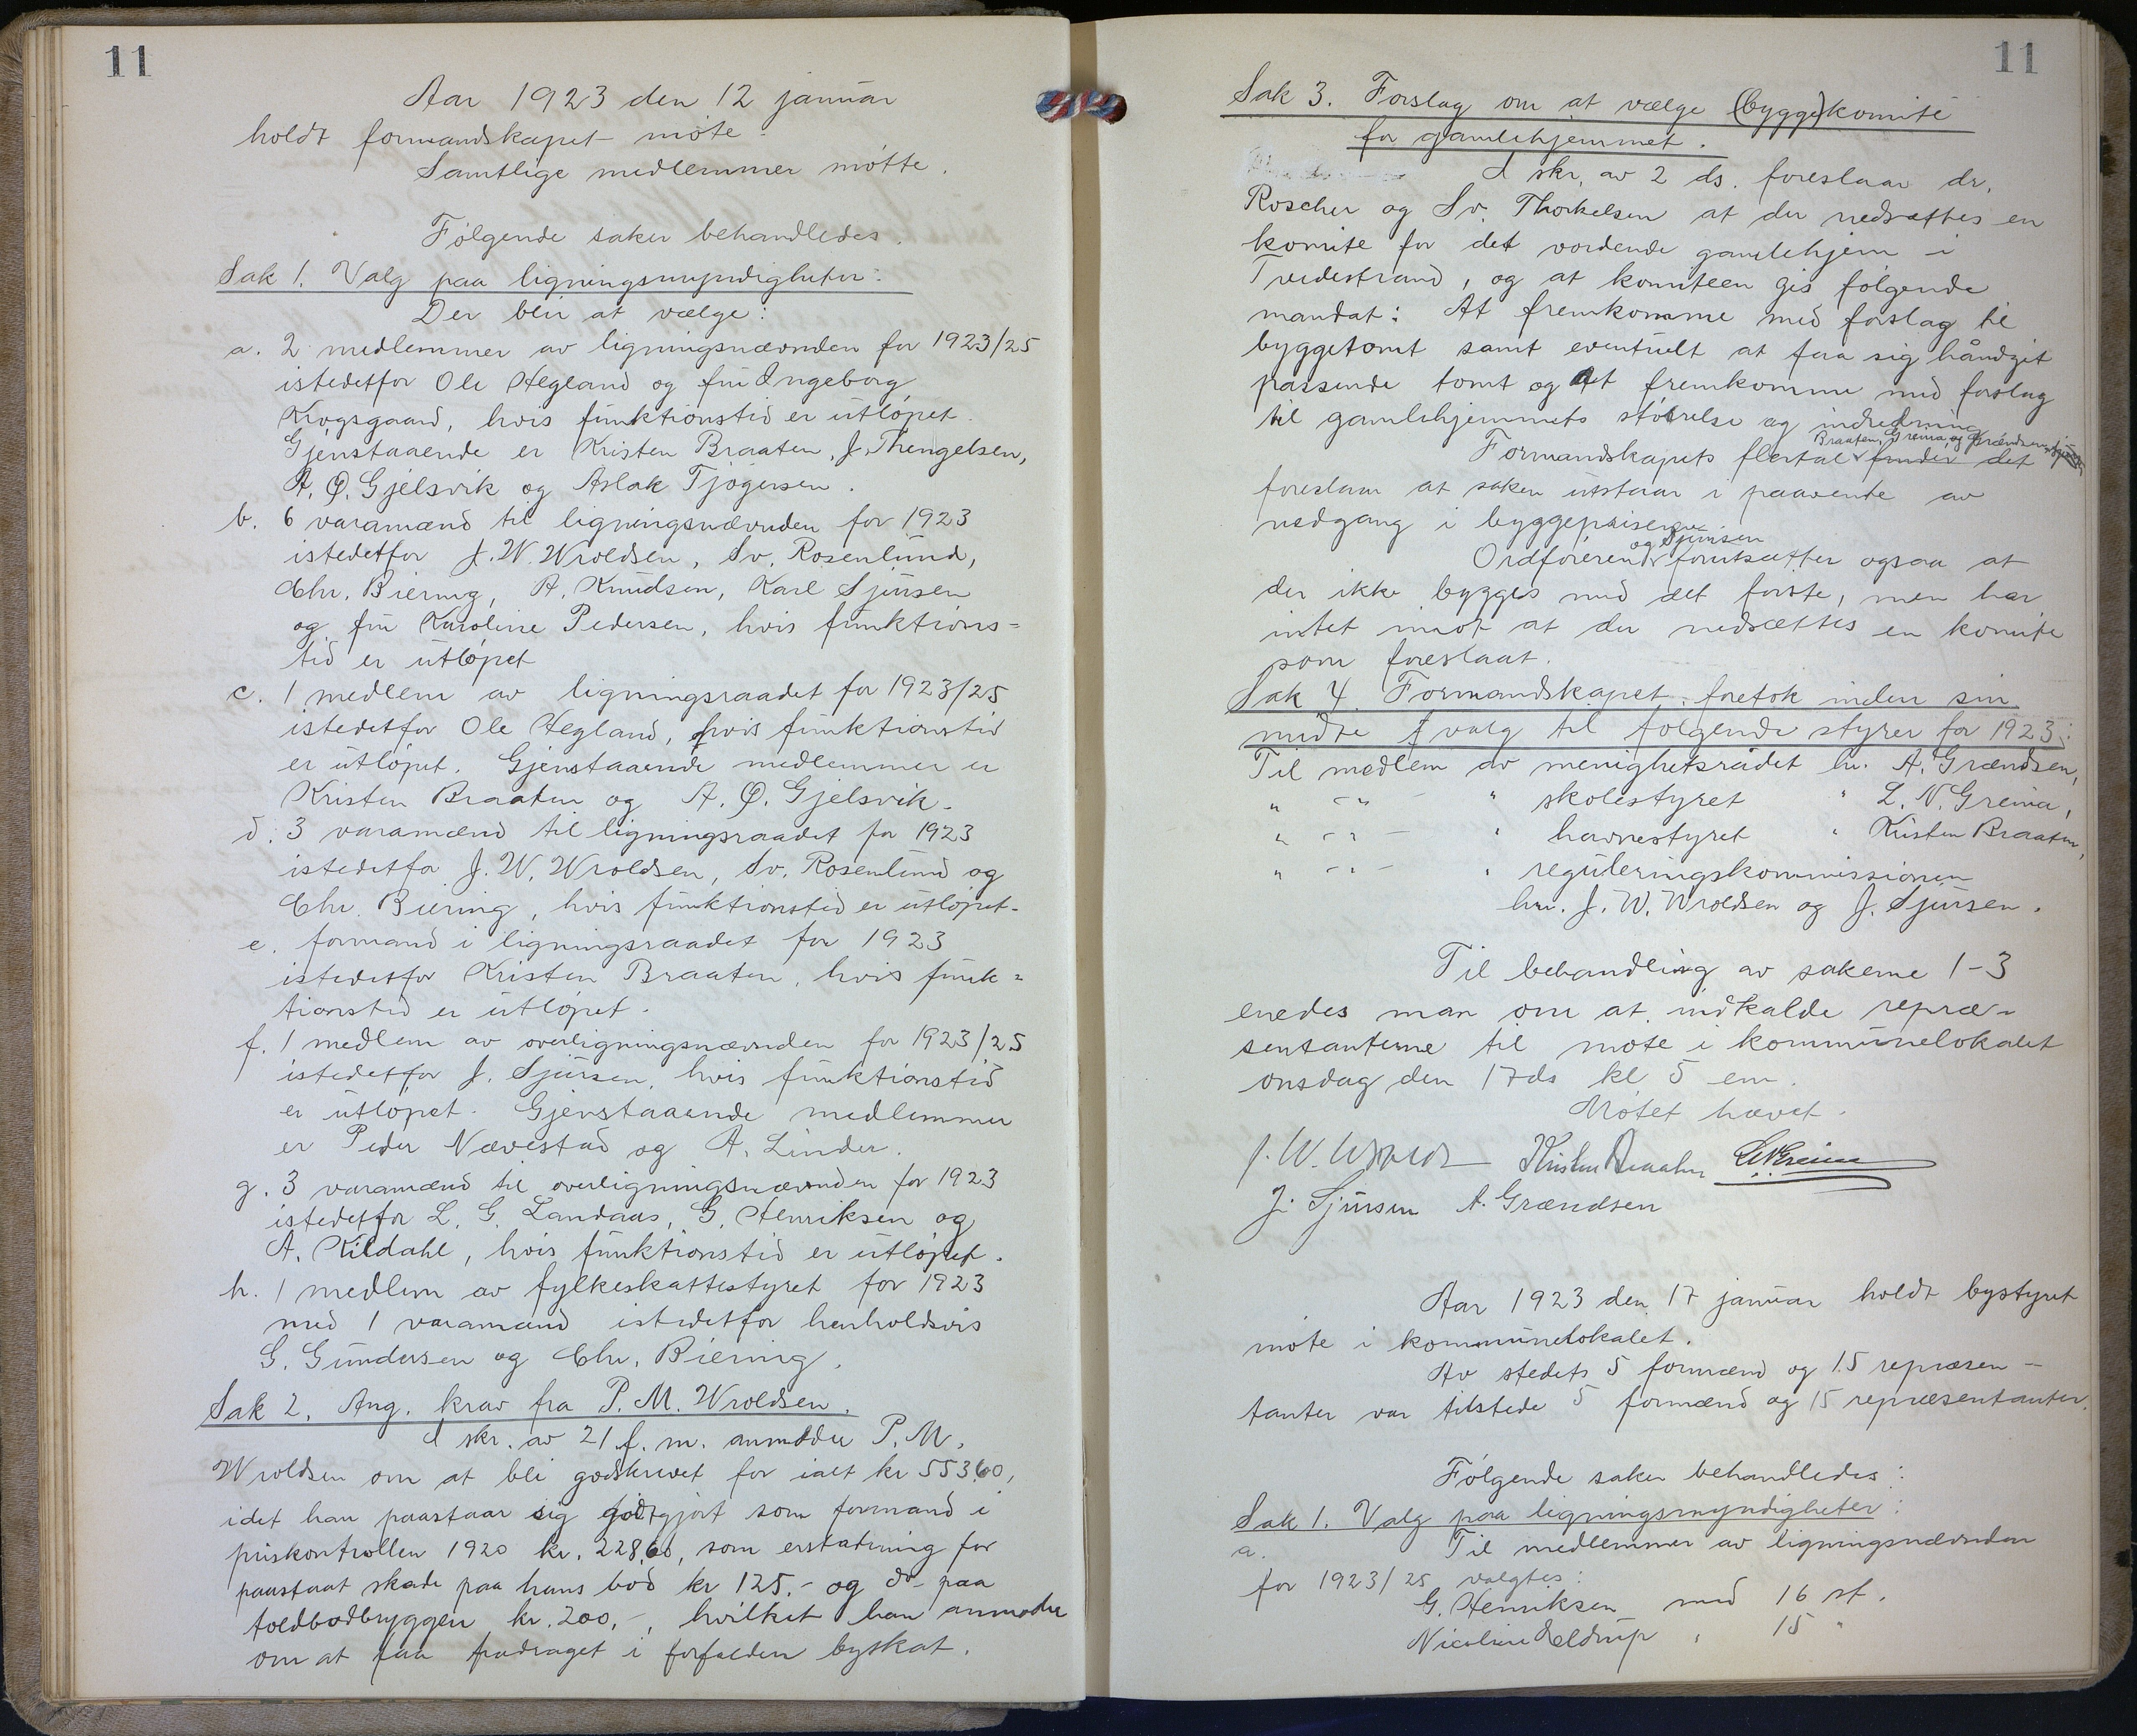 11
Aar 1923 den 12 januar
holdt formandskapet møte.
Samtlige medlemmer møtte.
Følgende saker behandledes.
Sak 1. Valg paa ligningsmyndigheter:
Der blir at vælge:
a. 2 medlemmer av ligningsnævnden for 1923/25
istedetfor Ole Hegland og fru Ingeborg
Krogsgaard, hvis funktionstid er utløpet.
Gjenstaaende er Kristen Braaten, J. Thengelsen,
A. Ø. Gjelsvik og Aslak Tjøgersen.
b. 6 varamænd til ligningsnævnden for 1923
istedetfor J. W. Wroldsen, Sv. Rosenlund,
Chr. Biering, A. Knudsen, Karl Sjursen
og fru Karoline Pedersen, hvis funktions-
tid er utløpet
c. 1 medlem av ligningsraadet for 1923/25
istedetfor Ole Hegland, hvis funktionstid
er utløpet. Gjenstaaende medlemmer er
Kristen Braaten og A. Ø. Gjelsvik.
d. 3 varamænd til ligningsraadet for 1923
istedetfor J. W. Wroldsen, Sv. Rosenlund og
Chr. Biering, hvis funktionstid er utløpet.
e. formand i ligningsraadet for 1923
istedetfor Kristen Braaten, hvis funk-
tionstid er utløpet.
f. 1 medlem av overligningsnævnden for 1923/25
istedetfor J. Sjursen, hvis funktionstid
er utløpet. Gjenstaaende medlemmer
er Peder Nævestad og A. Linder.
g. 3 varamænd til overligningsnævnden for 1923
istedetfor L. G. Landaas, G. Henriksen og
A. Kildahl, hvis funktionstid er utløpet.
h. 1 medlem av fylkeskattestyret for 1923
med 1 varamand istedetfor henholdsvis
G. Gundersen og Chr. Biering.
Sak 2. Ang. krav fra P. M. Wroldsen.
I skr. av 21 f. m. anmoder P. M.
Wroldsen om at bli godskrevet for ialt kr 553,60,
idet han paastaar sig godtgjort som formand i
priskontrollen 1920 kr. 228,60, som erstatning for
paastaat skade paa hans bod kr 125.- og do- paa
toldbodbryggen kr. 200,-, hvilket han anmoder
om at faa fradraget i forfalden byskat.
11
Sak 3. Forslag om at vælge (bygge)komité
for gamlehjemmet.
I skr. av 2 ds. foreslaar dr.
Roscher og Sv. Thorkelsen at der nedsættes en
komite for det vordende gamlehjem i
Tvedestrand, og at komiteen gis følgende
mandat: At fremkomme med forslag til
byggetomt samt eventuelt at faa sig håndgit
passende tomt og at fremkomme med forslag
til gamlehjemmets størrelse og indredning
Braaten, Greina, og Grændsen
Formandskapets flertal finder det
foreslaar at saken utstaar i paavente av
nedgang i byggepriserne
og Sjursen
Ordføreren forutsætter ogsaa at
der ikke bygges med det første, men har
intet imot at der nedsættes en komite
som foreslaat.
Sak 4. Formandskapet foretok inden sin
midte valg til følgende styrer for 1923:
Til medlem av menighetsrådet hr. A. Grændsen,
" -"- " skolestyret " L. N. Greina,
" -"- " havnestyret " Kristen Braaten,
" -"- " reguleringskommissionen
hrr. J. W. Wroldsen og J. Sjursen.
Til behandling av sakerne 1-3
enedes man om at indkalde repræ-
sentanterne til møte i kommunelokalet
onsdag den 17 ds kl 5 em.
Møtet hævet.
J. W. Wroldsen Kristen Braaten LNGreina
J. Sjursen A. Grændsen
Aar 1923 den 17 januar holdt bystyret
møte i kommunelokalet.
Av stedets 5 formænd og 15 repræsen-
tanter var tilstede 5 formænd og 15 repræsentanter.
Følgende saker behandledes:
Sak 1. Valg paa ligningsmyndigheter:
a. Til medlemmer av ligningsnævnden
for 1923/25 valgtes:
G. Henriksen med 16 st.
Nicoline Heldrup " 15 "